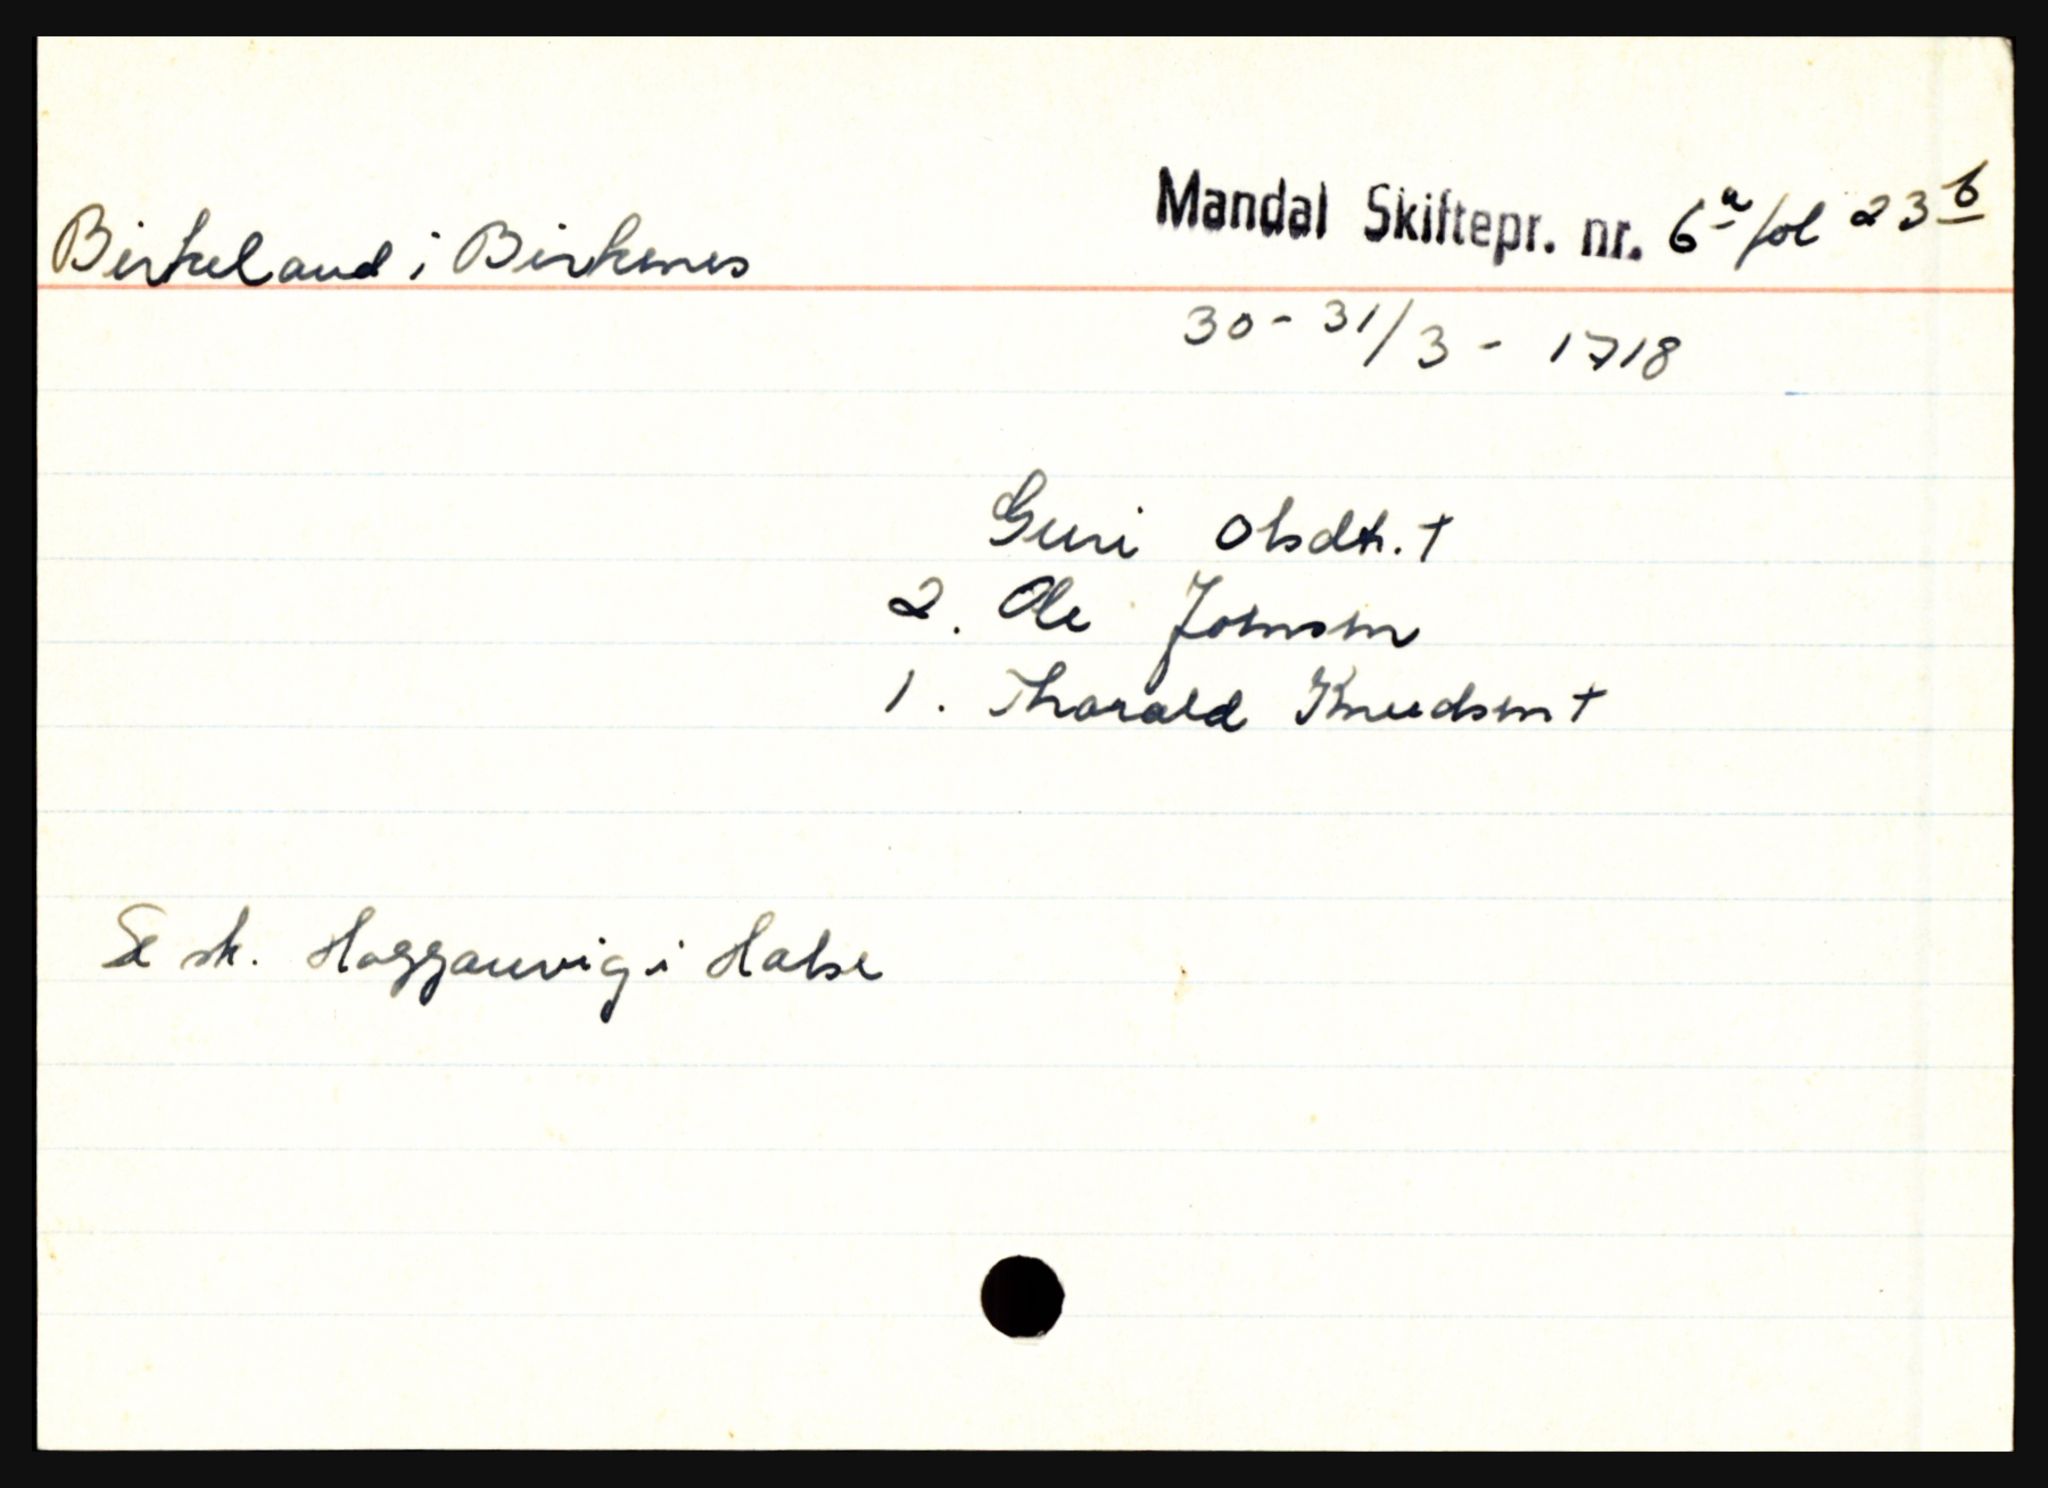 Birkeland i Birkenes
Mandal Skiftepr. nr. 6a fol 23b
30-31/3 - 1718
Guri Olsdtr. †
2. Ole Joensen
1. Tharald Knudsen †
Se sk. Haggauvig i Halse